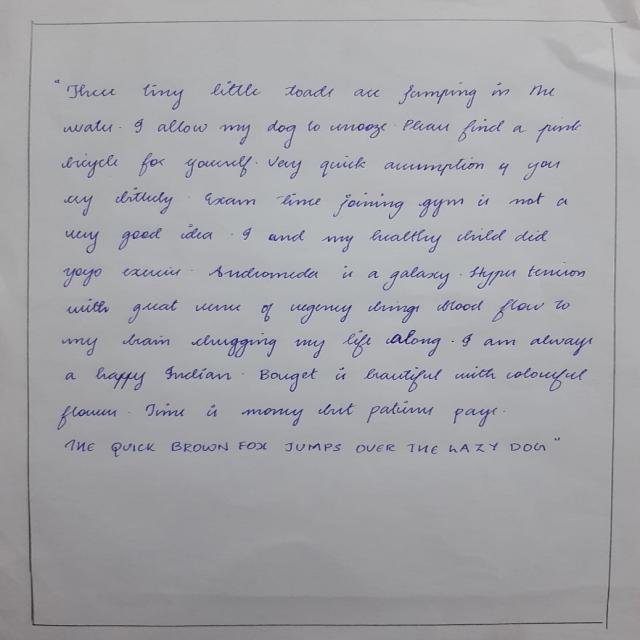 "Three tiny little toads are jumping in the
water. I allow my dog to snooze. Please find a pink
bicycle for yourself. Very quick assumption if you
cry bitterly. Exam time joining gym is not a
very good idea. I and my healthy child did
yoyo exercise. Andromeda is a galaxy. Hyper tension
with great sense of urgency brings blood flow to
my brain chugging my life along. I am always
a happy Indian. Bouget is beautiful with colourful
flowers. Time is money but patience pays.
THE QUICK BROWN FOX JUMPS OVER THE LAZY DOG"